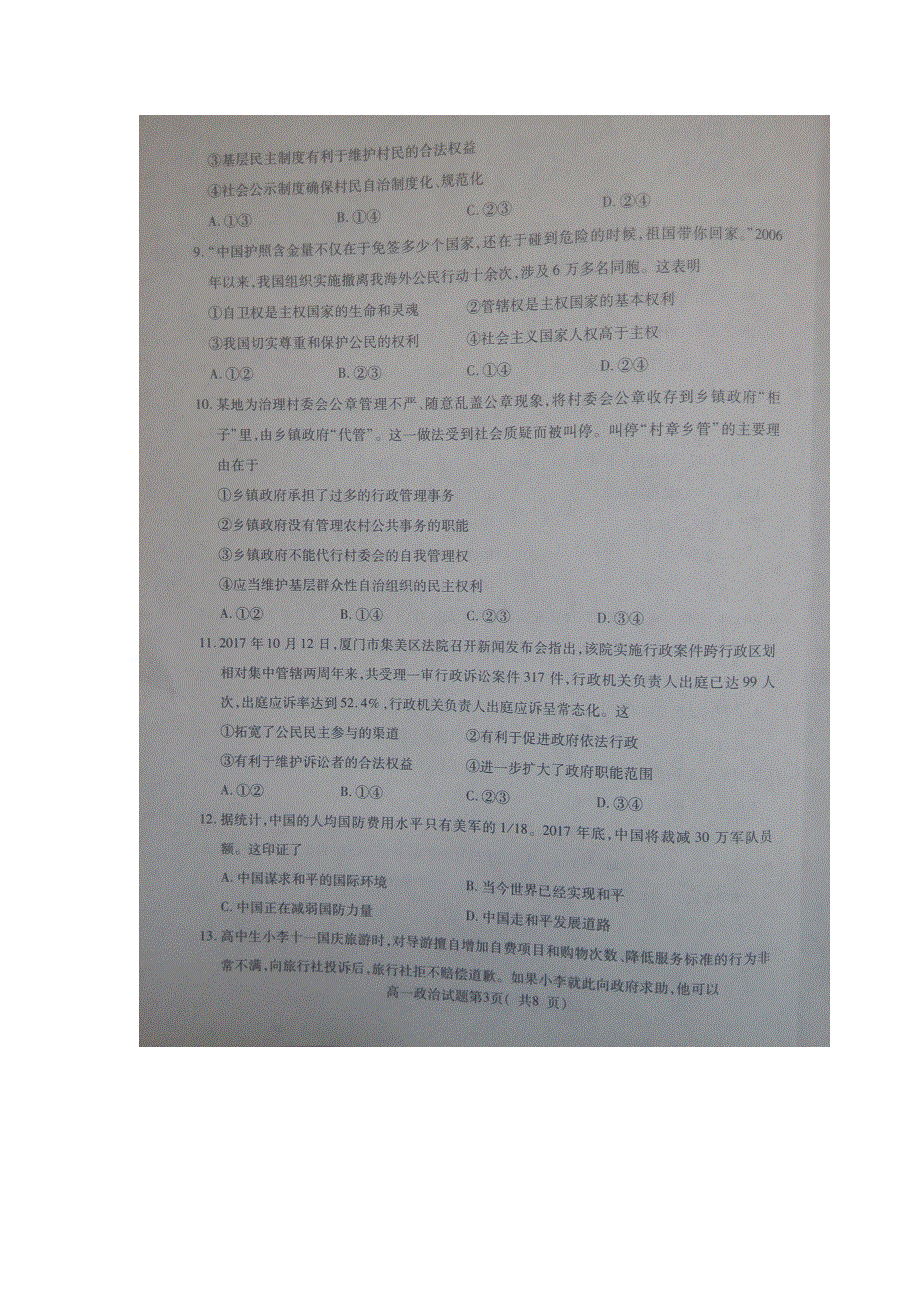 ③基层民主制度有利于维护村民的合法权益
④社会公示制度确保村民自治制度化、规范化
A. ①③ B. ①④ C. ②③ D. ②④
9. “中国护照含金量不仅在于免签多少个国家,还在于碰到危险的时候,祖国带你回家。”2006
年以来,我国组织实施撤离我海外公民行动十余次,涉及 6 万多名同胞。这表明
①自卫权是主权国家的生命和灵魂 ②管辖权是主权国家的基本权利
③我国切实尊重和保护公民的权利 ④社会主义国家人权高于主权
A. ①② B. ②③ C. ①④ D. ②④
10. 某地为治理村委会公章管理不严、随意乱盖公章现象,将村委会公章收存到乡镇政府“柜
子”里,由乡镇政府“代管”。这一做法受到社会质疑而被叫停。叫停“村章乡管”的主要理
由在于
①乡镇政府承担了过多的行政管理事务
②乡镇政府没有管理农村公共事务的职能
③乡镇政府不能代行村委会的自我管理权
④应当维护基层群众性自治组织的民主权利
A. ①② B. ①④ C. ②③ D. ③④
11. 2017 年 10 月 12 日,厦门市集美区法院召开新闻发布会指出,该院实施行政案件跨行政区划
相对集中管辖两周年来,共受理一审行政诉讼案件 317 件,行政机关负责人出庭已达 99 人
次,出庭应诉率达到 52.4%,行政机关负责人出庭应诉呈常态化。这
①拓宽了公民民主参与的渠道 ②有利于促进政府依法行政
③有利于维护诉讼者的合法权益 ④进一步扩大了政府职能范围
A. ①② B. ①④ C. ②③ D. ③④
12. 据统计,中国的人均国防费用水平只有美军的 1/18。2017 年底,中国将裁减 30 万军队员
额。这印证了
A. 中国谋求和平的国际环境 B. 当今世界已经实现和平
C. 中国正在减弱国防力量 D. 中国走和平发展道路
13. 高中生小李十一国庆旅游时,对导游擅自增加自费项目和购物次数、降低服务标准的行为非
常不满,向旅行社投诉后,旅行社拒不赔偿道歉。如果小李就此向政府求助,他可以
高一政治试题第3页( 共8 页)